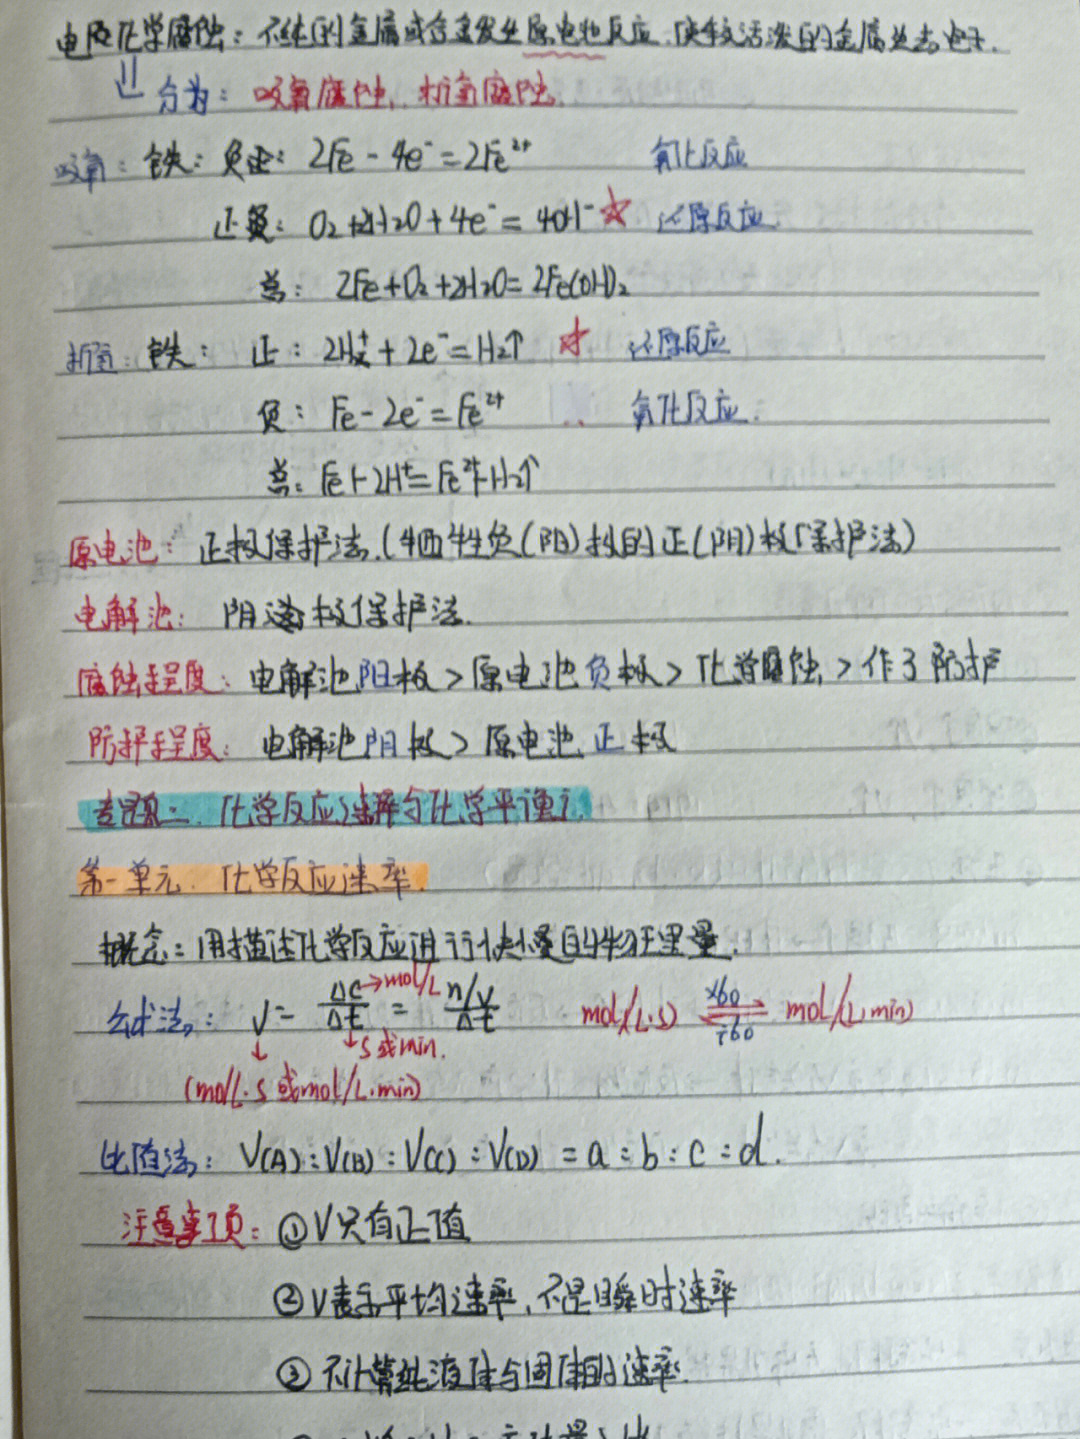 电化学腐蚀：不纯的金属或合金发生原电池反应，使较活泼的金属失去电子.
分为：吸氧腐蚀，析氢腐蚀
吸氧：铁：负极：2Fe－4e⁻＝2Fe²⁺ 氧化反应
正极：O₂+2H₂O+4e⁻＝4OH⁻ ☆ 还原反应
总：2Fe+O₂+2H₂O＝2Fe(OH)₂
析氢：铁：正：2H⁺+2e⁻＝H₂↑ ☆ 还原反应
负：Fe－2e⁻＝Fe²⁺ 氧化反应.
总：Fe+2H⁺＝Fe²⁺+H₂↑
原电池：正极保护法.(牺牲负(阳)极的正(阴)极保护法)
电解池：阴极保护法.
腐蚀程度：电解池阳极>原电池负极>化学腐蚀>作了防护
防护程度：电解池阴极>原电池正极
专题二. 化学反应速率与化学平衡
第一单元. 化学反应速率.
概念：用描述化学反应进行快慢的物理量.
公式法：V＝Δc/Δt＝n/V/Δt →mol/L ↓s或min. mol/(L·s) ×60 ÷60 mol/(L·min)
(mol/L·s或mol/L·min)
比值法：V(A):V(B):V(C):V(D)＝a:b:c:d.
注意事项：①V只有正值
②V表示平均速率,不是瞬时速率
③不计算纯液体与固体的速率.